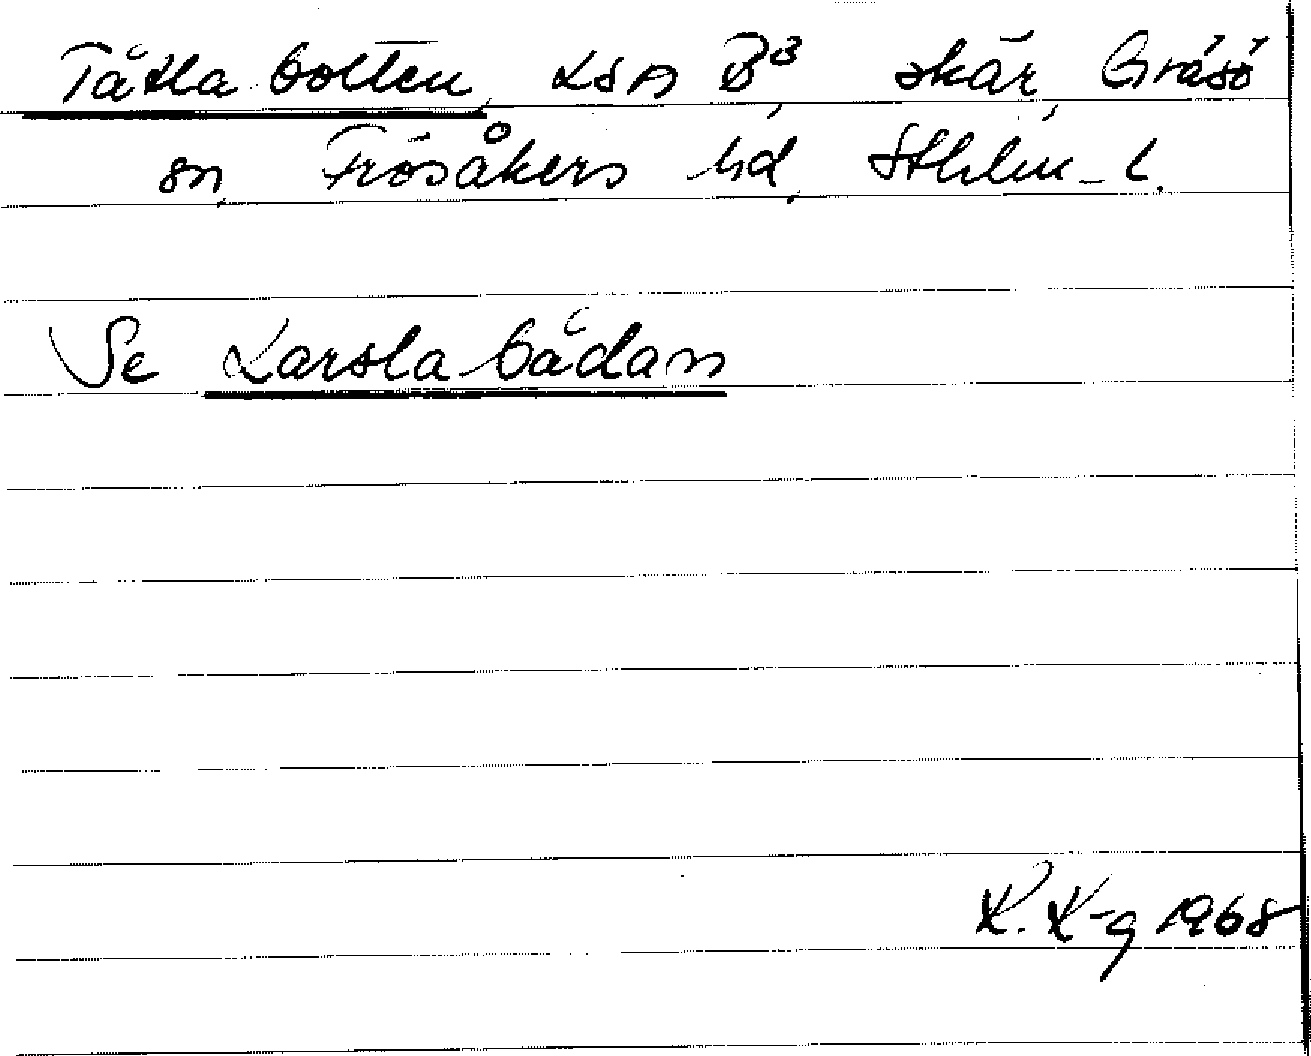 Tåtla botten, LSA B³ skär, Gräsö
sn, Frösåkers hd, Sthlm-L.
Se Larsla bådan
K. K-g 1968